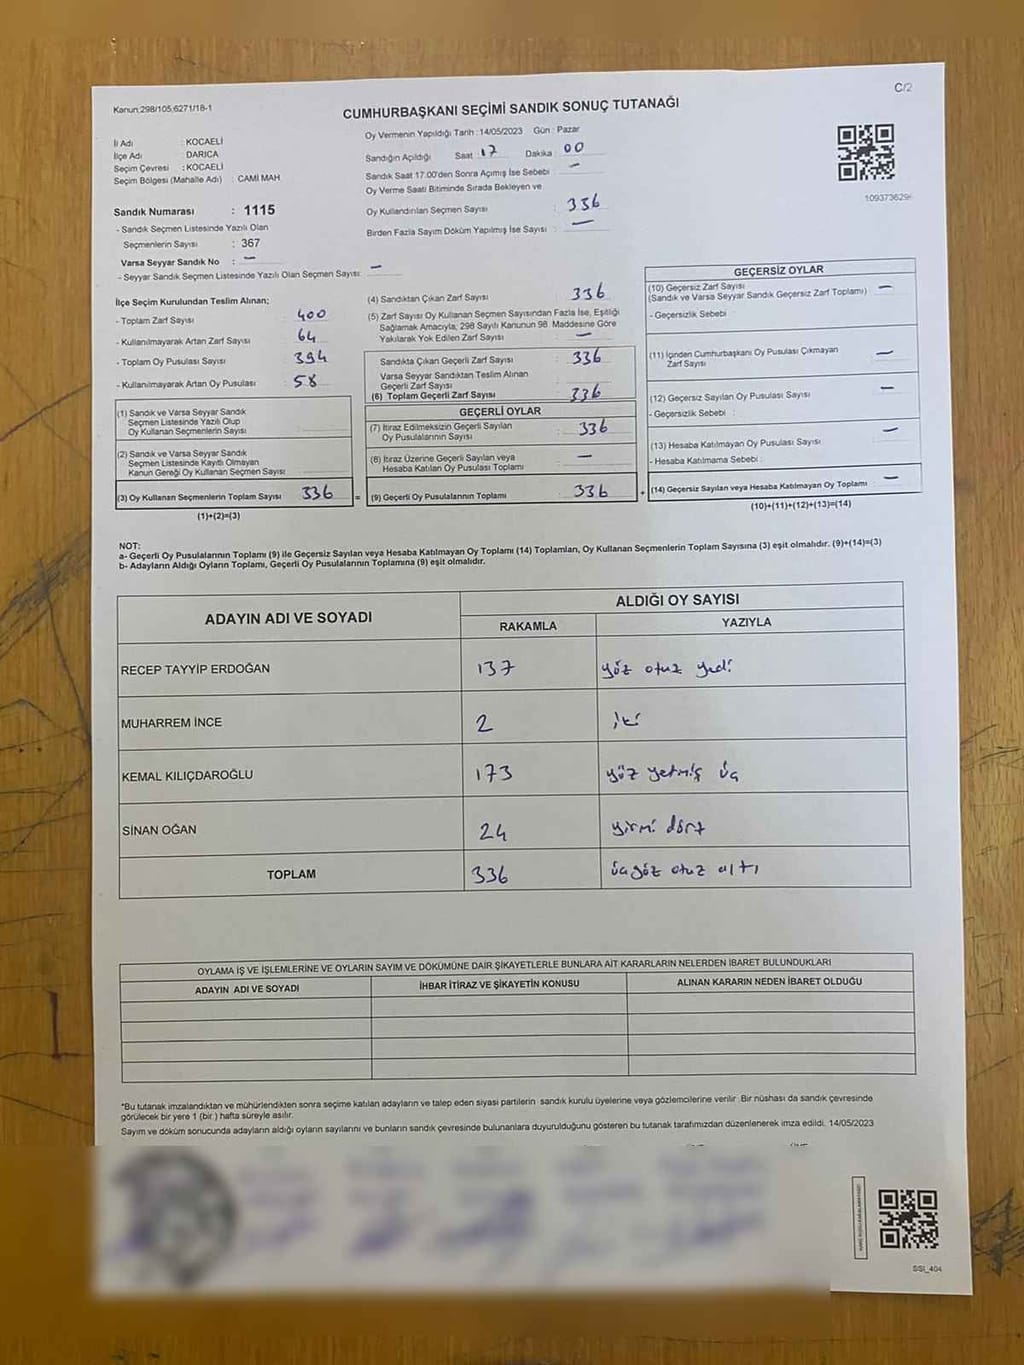 Kanun;298/105,6271/18-1
C/2
CUMHURBAŞKANI SEÇİMİ SANDIK SONUÇ TUTANAĞI
İl Adı : KOCAELİ
İlçe Adı DARICA
Seçim Çevresi : KOCAELİ
Seçim Bölgesi (Mahalle Adı) : CAMİ MAH
Sandık Numarası : 1115
- Sandık Seçmen Listesinde Yazılı Olan
Seçmenlerin Sayısı : 367
Varsa Seyyar Sandık No : —
- Seyyar Sandık Seçmen Listesinde Yazılı Olan Seçmen Sayısı: —
Oy Vermenin Yapıldığı Tarih : 14/05/2023 Gün : Pazar
Sandığın Açıldığı Saat 17 Dakika 00
Sandık Saat 17.00'den Sonra Açımış İse Sebebi : —
Oy Verme Saati Bitiminde Sırada Bekleyen ve
Oy Kullandırılan Seçmen Sayısı : 336
Birden Fazla Sayım Döküm Yapılmış İse Sayısı : —
İlçe Seçim Kurulundan Teslim Alınan;
- Toplam Zarf Sayısı : 400
- Kullanılmayarak Artan Zarf Sayısı : 64
- Toplam Oy Pusulası Sayısı : 394
- Kullanılmayarak Artan Oy Pusulası : 58
(1) Sandık ve Varsa Seyyar Sandık
Seçmen Listesinde Yazılı Olup
Oy Kullanan Seçmenlerin Sayısı
(2) Sandık ve Varsa Seyyar Sandık
Seçmen Listesinde Kayıtlı Olmayan
Kanun Gereği Oy Kullanan Seçmen Sayısı
(3) Oy Kullanan Seçmenlerin Toplam Sayısı 336
(1)+(2)=(3)
(4) Sandıktan Çıkan Zarf Sayısı : 336
(5) Zarf Sayısı Oy Kullanan Seçmen Sayısından Fazla İse, Eşitliği
Sağlamak Amacıyla; 298 Sayılı Kanunun 98. Maddesine Göre
Yakılarak Yok Edilen Zarf Sayısı : —
Sandıkta Çıkan Geçerli Zarf Sayısı : 336
Varsa Seyyar Sandıktan Teslim Alınan
Geçerli Zarf Sayısı
(6) Toplam Geçerli Zarf Sayısı : 336
GEÇERLİ OYLAR
(7) İtiraz Edilmeksizin Geçerli Sayılan
Oy Pusulalarının Sayısı : 336
(8) İtiraz Üzerine Geçerli Sayılan veya
Hesaba Katılan Oy Pusulası Toplamı : —
= (9) Geçerli Oy Pusulalarının Toplamı : 336
GEÇERSİZ OYLAR
(10) Geçersiz Zarf Sayısı
(Sandık ve Varsa Seyyar Sandık Geçersiz Zarf Toplamı) —
- Geçersizlik Sebebi :
(11) İçinden Cumhurbaşkanı Oy Pusulası Çıkmayan
Zarf Sayısı —
(12) Geçersiz Sayılan Oy Pusulası Sayısı —
- Geçersizlik Sebebi :
(13) Hesaba Katılmayan Oy Pusulası Sayısı —
- Hesaba Katılmama Sebebi :
+ (14) Geçersiz Sayılan veya Hesaba Katılmayan Oy Toplamı —
(10)+(11)+(12)+(13)=(14)
NOT:
a- Geçerli Oy Pusulalarının Toplamı (9) ile Geçersiz Sayılan veya Hesaba Katılmayan Oy Toplamı (14) Toplamları, Oy Kullanan Seçmenlerin Toplam Sayısına (3) eşit olmalıdır. (9)+(14)=(3)
b- Adayların Aldığı Oyların Toplamı, Geçerli Oy Pusulalarının Toplamına (9) eşit olmalıdır.
ADAYIN ADI VE SOYADI
ALDIĞI OY SAYISI
RAKAMLA YAZIYLA
RECEP TAYYİP ERDOĞAN 137 yüz otuz yedi
MUHARREM İNCE 2 iki
KEMAL KILIÇDAROĞLU 173 yüz yetmiş üç
SİNAN OĞAN 24 yirmi dört
TOPLAM 336 üçyüz otuz altı
OYLAMA İŞ VE İŞLEMLERİNE VE OYLARIN SAYIM VE DÖKÜMÜNE DAİR ŞİKAYETLERLE BUNLARA AİT KARARLARIN NELERDEN İBARET BULUNDUKLARI
ADAYIN ADI VE SOYADI İHBAR İTİRAZ VE ŞİKAYETİN KONUSU ALINAN KARARIN NEDEN İBARET OLDUĞU
*Bu tutanak imzalandıktan ve mühürlendikten sonra seçime katılan adayların ve talep eden siyasi partilerin sandık kurulu üyelerine veya gözlemcilerine verilir. Bir nüshası da sandık çevresinde
görülecek bir yere 1 (bir ) hafta süreyle asılır.
Sayım ve döküm sonucunda adayların aldığı oyların sayılarını ve bunların sandık çevresinde bulunanlara duyurulduğunu gösteren bu tutanak tarafımızdan düzenlenerek imza edildi. 14/05/2023
SSI_404